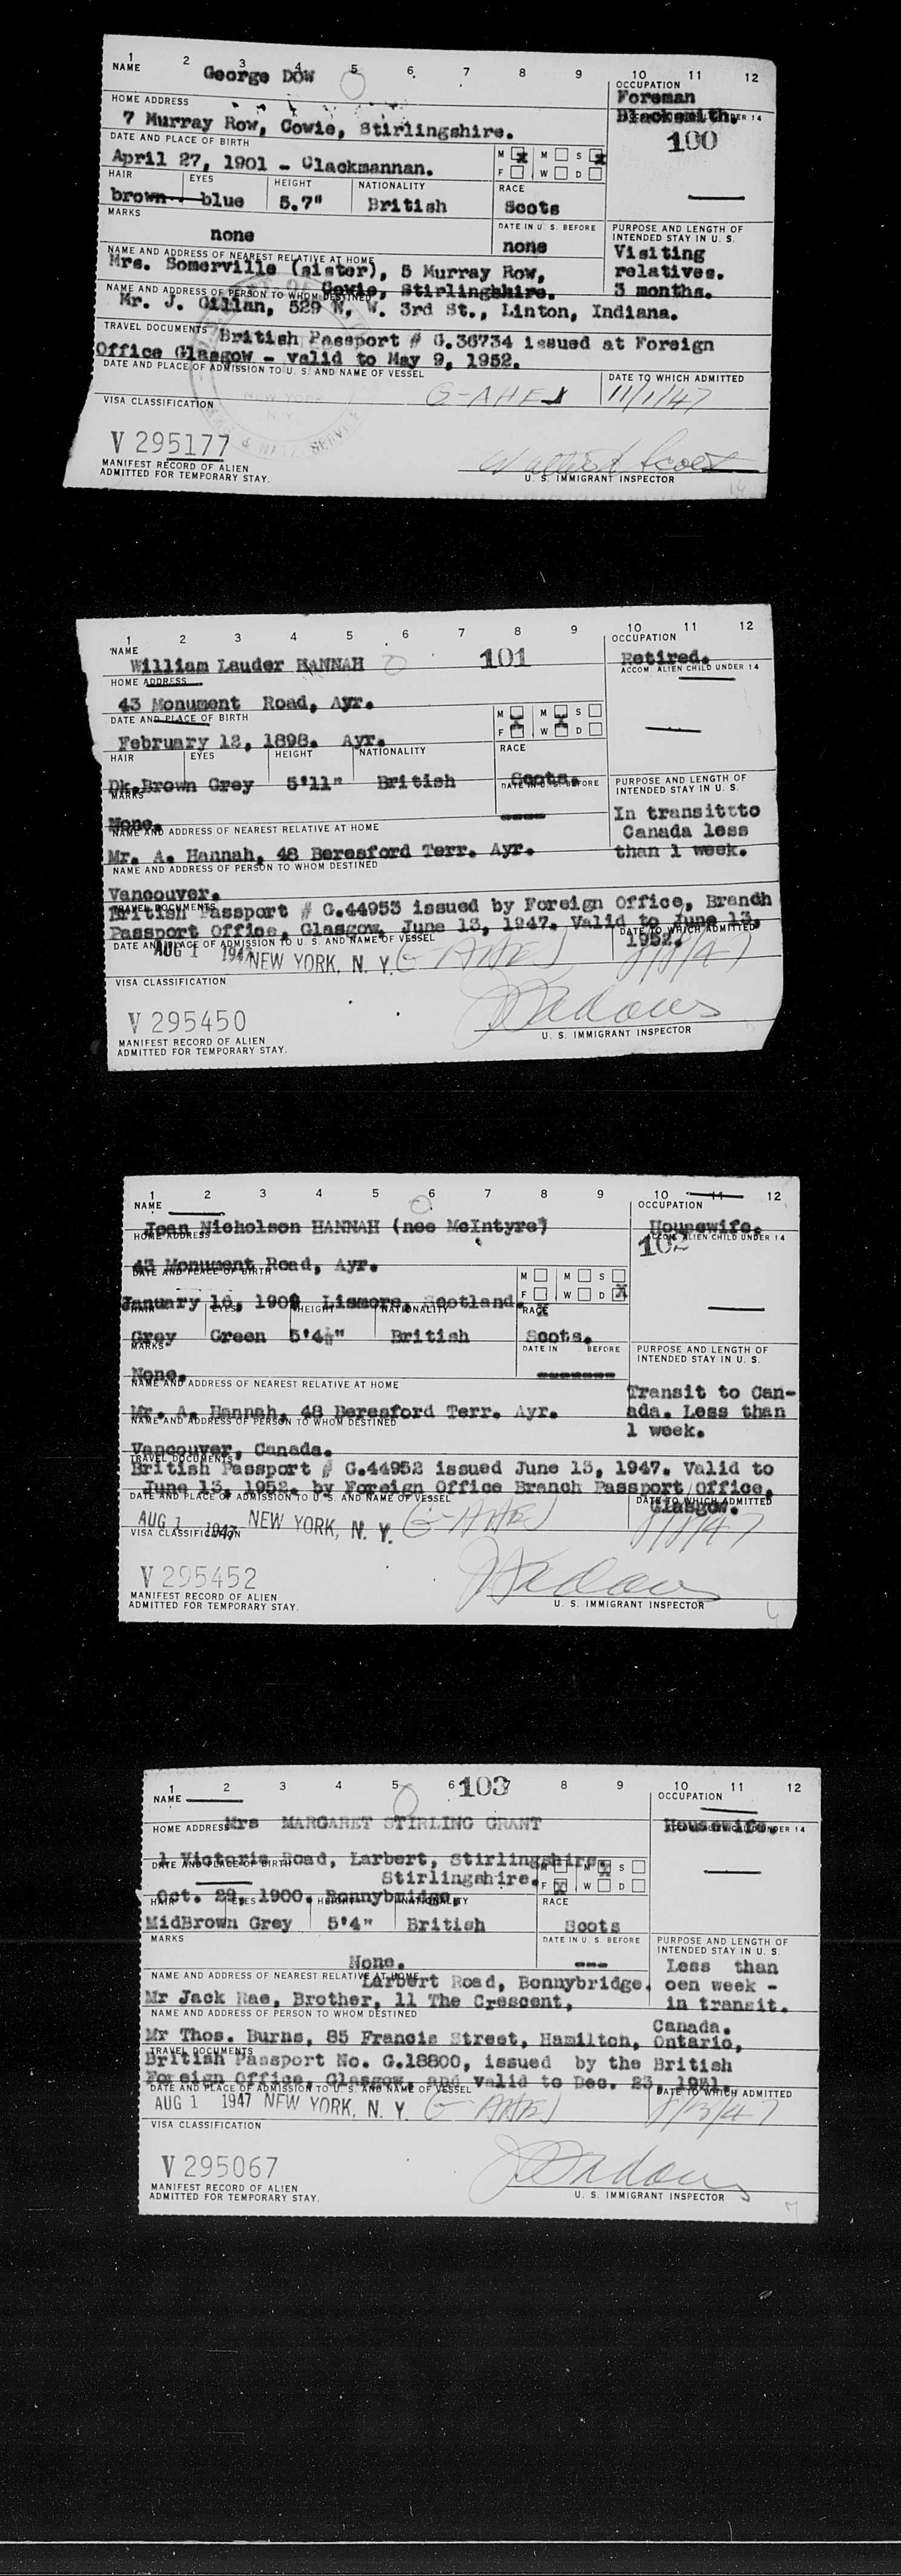 1 2 3 4 5 6 7 8 9 10 11 12
NAME George DOW OCCUPATION
Foreman
HOME ADDRESS Blacksmith.
7 Murray Row, Cowie, Stirlingshire. 100
DATE AND PLACE OF BIRTH
April 27, 1901 - Clackmannan. M M S
F W D
HAIR EYES HEIGHT NATIONALITY RACE
brown blue 5.7" British Scots
MARKS DATE IN U. S. BEFORE PURPOSE AND LENGTH OF
INTENDED STAY IN U. S.
none none Visiting
NAME AND ADDRESS OF NEAREST RELATIVE AT HOME relatives.
Mrs. Somerville (sister), 5 Murray Row, 3 months.
Cowie, Stirlingshire.
NAME AND ADDRESS OF PERSON TO WHOM DESTINED
Mr. J. Gillan, 529 N. W. 3rd St., Linton, Indiana.
TRAVEL DOCUMENTS British Passport # G.36734 issued at Foreign
Office Glasgow - valid to May 9, 1952.
DATE AND PLACE OF ADMISSION TO U. S. AND NAME OF VESSEL DATE TO WHICH ADMITTED
NEW YORK N.Y. G-AHEJ 11/1/47
VISA CLASSIFICATION
V 295177
MANIFEST RECORD OF ALIEN
ADMITTED FOR TEMPORARY STAY. U. S. IMMIGRANT INSPECTOR
1 2 3 4 5 6 7 8 9 10 11 12
NAME OCCUPATION
William Lauder HANNAH 101 Retired.
HOME ADDRESS ACCOM. ALIEN CHILD UNDER 14
43 Monument Road, Ayr.
DATE AND PLACE OF BIRTH M M S
F W D
February 12, 1898. Ayr.
HAIR EYES HEIGHT NATIONALITY RACE
Dk.Brown Grey 5'11" British Scots.
MARKS DATE IN U. S. BEFORE PURPOSE AND LENGTH OF
INTENDED STAY IN U. S.
None. In transitto
NAME AND ADDRESS OF NEAREST RELATIVE AT HOME Canada less
Mr. A. Hannah, 48 Beresford Terr. Ayr. than 1 week.
NAME AND ADDRESS OF PERSON TO WHOM DESTINED
Vancouver.
TRAVEL DOCUMENTS
British Passport # G.44953 issued by Foreign Office, Branch
Passport Office, Glasgow. June 13, 1947. Valid to June 13,
1952.
DATE AND PLACE OF ADMISSION TO U. S. AND NAME OF VESSEL DATE TO WHICH ADMITTED
AUG 1 1947 NEW YORK, N. Y. G-AHEJ 8/8/47
VISA CLASSIFICATION
V 295450
MANIFEST RECORD OF ALIEN
ADMITTED FOR TEMPORARY STAY. U. S. IMMIGRANT INSPECTOR
1 2 3 4 5 6 7 8 9 10 11 12
NAME OCCUPATION
Jean Nicholson HANNAH (nee McIntyre) Housewife.
HOME ADDRESS ACCOM. ALIEN CHILD UNDER 14
102
43 Monument Road, Ayr.
DATE AND PLACE OF BIRTH M M S
F W D
January 1909 Lismore, Scotland.
HAIR EYES HEIGHT NATIONALITY RACE
Grey Green 5'4½" British Scots.
MARKS DATE IN BEFORE PURPOSE AND LENGTH OF
INTENDED STAY IN U. S.
None.
NAME AND ADDRESS OF NEAREST RELATIVE AT HOME Transit to Can-
Mr. A. Hannah, 48 Beresford Terr. Ayr. ada. Less than
NAME AND ADDRESS OF PERSON TO WHOM DESTINED 1 week.
Vancouver, Canada.
TRAVEL DOCUMENTS
British Passport # G.44952 issued June 13, 1947. Valid to
June 13, 1952. by Foreign Office Branch Passport Office,
Glasgow.
DATE AND PLACE OF ADMISSION TO U. S. AND NAME OF VESSEL DATE TO WHICH ADMITTED
AUG 1 1947 NEW YORK, N. Y. G-AHEJ 8/8/47
VISA CLASSIFICATION
V 295452
MANIFEST RECORD OF ALIEN
ADMITTED FOR TEMPORARY STAY. U. S. IMMIGRANT INSPECTOR
1 2 3 4 5 6 7 8 9 10 11 12
103
NAME OCCUPATION
Mrs MARGARET STIRLING GRANT Housewife.
HOME ADDRESS
1 Victoria Road, Larbert, Stirlingshire.
DATE AND PLACE OF BIRTH M M S
Stirlingshire. F W D
Oct. 29, 1900. Bonnybridge,
HAIR EYES HEIGHT NATIONALITY RACE
MidBrown Grey 5'4" British Scots
MARKS DATE IN U. S. BEFORE PURPOSE AND LENGTH OF
INTENDED STAY IN U. S.
None. --- Less than
NAME AND ADDRESS OF NEAREST RELATIVE AT HOME
Larbert Road, Bonnybridge. oen week -
Mr Jack Rae, Brother, 11 The Crescent, in transit.
NAME AND ADDRESS OF PERSON TO WHOM DESTINED
Canada.
Mr Thos. Burns, 85 Francis Street, Hamilton, Ontario,
TRAVEL DOCUMENTS
British Passport No. G.18800, issued by the British
Foreign Office, Glasgow, and valid to Dec. 23, 1951.
DATE AND PLACE OF ADMISSION TO U. S. AND NAME OF VESSEL DATE TO WHICH ADMITTED
AUG 1 1947 NEW YORK, N. Y. G-AHEJ 8/13/47
VISA CLASSIFICATION
V 295067
MANIFEST RECORD OF ALIEN
ADMITTED FOR TEMPORARY STAY. U. S. IMMIGRANT INSPECTOR